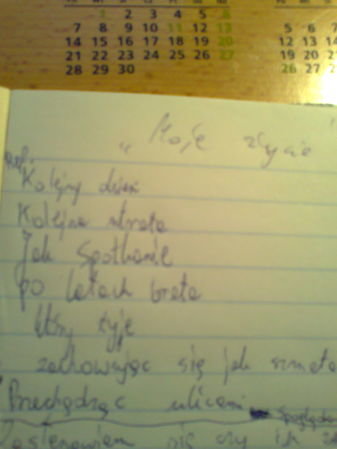 1 2 3 4 5 6
7 8 9 10 11 12 13
14 15 16 17 18 19 20
21 22 23 24 25 26 27
28 29 30
5 6
12 13
19 20
26 27
„Moje życie
Ref:
Kolejny dzień
Kolejna strata
Jak spotkanie
po latach brata
który żyje
zachowując się jak szmata
Przechodząc ulicami
Zastanawiam się czy ich